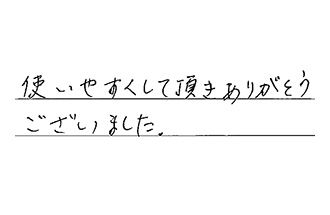 使いやすくして頂きありがとう
ございました.